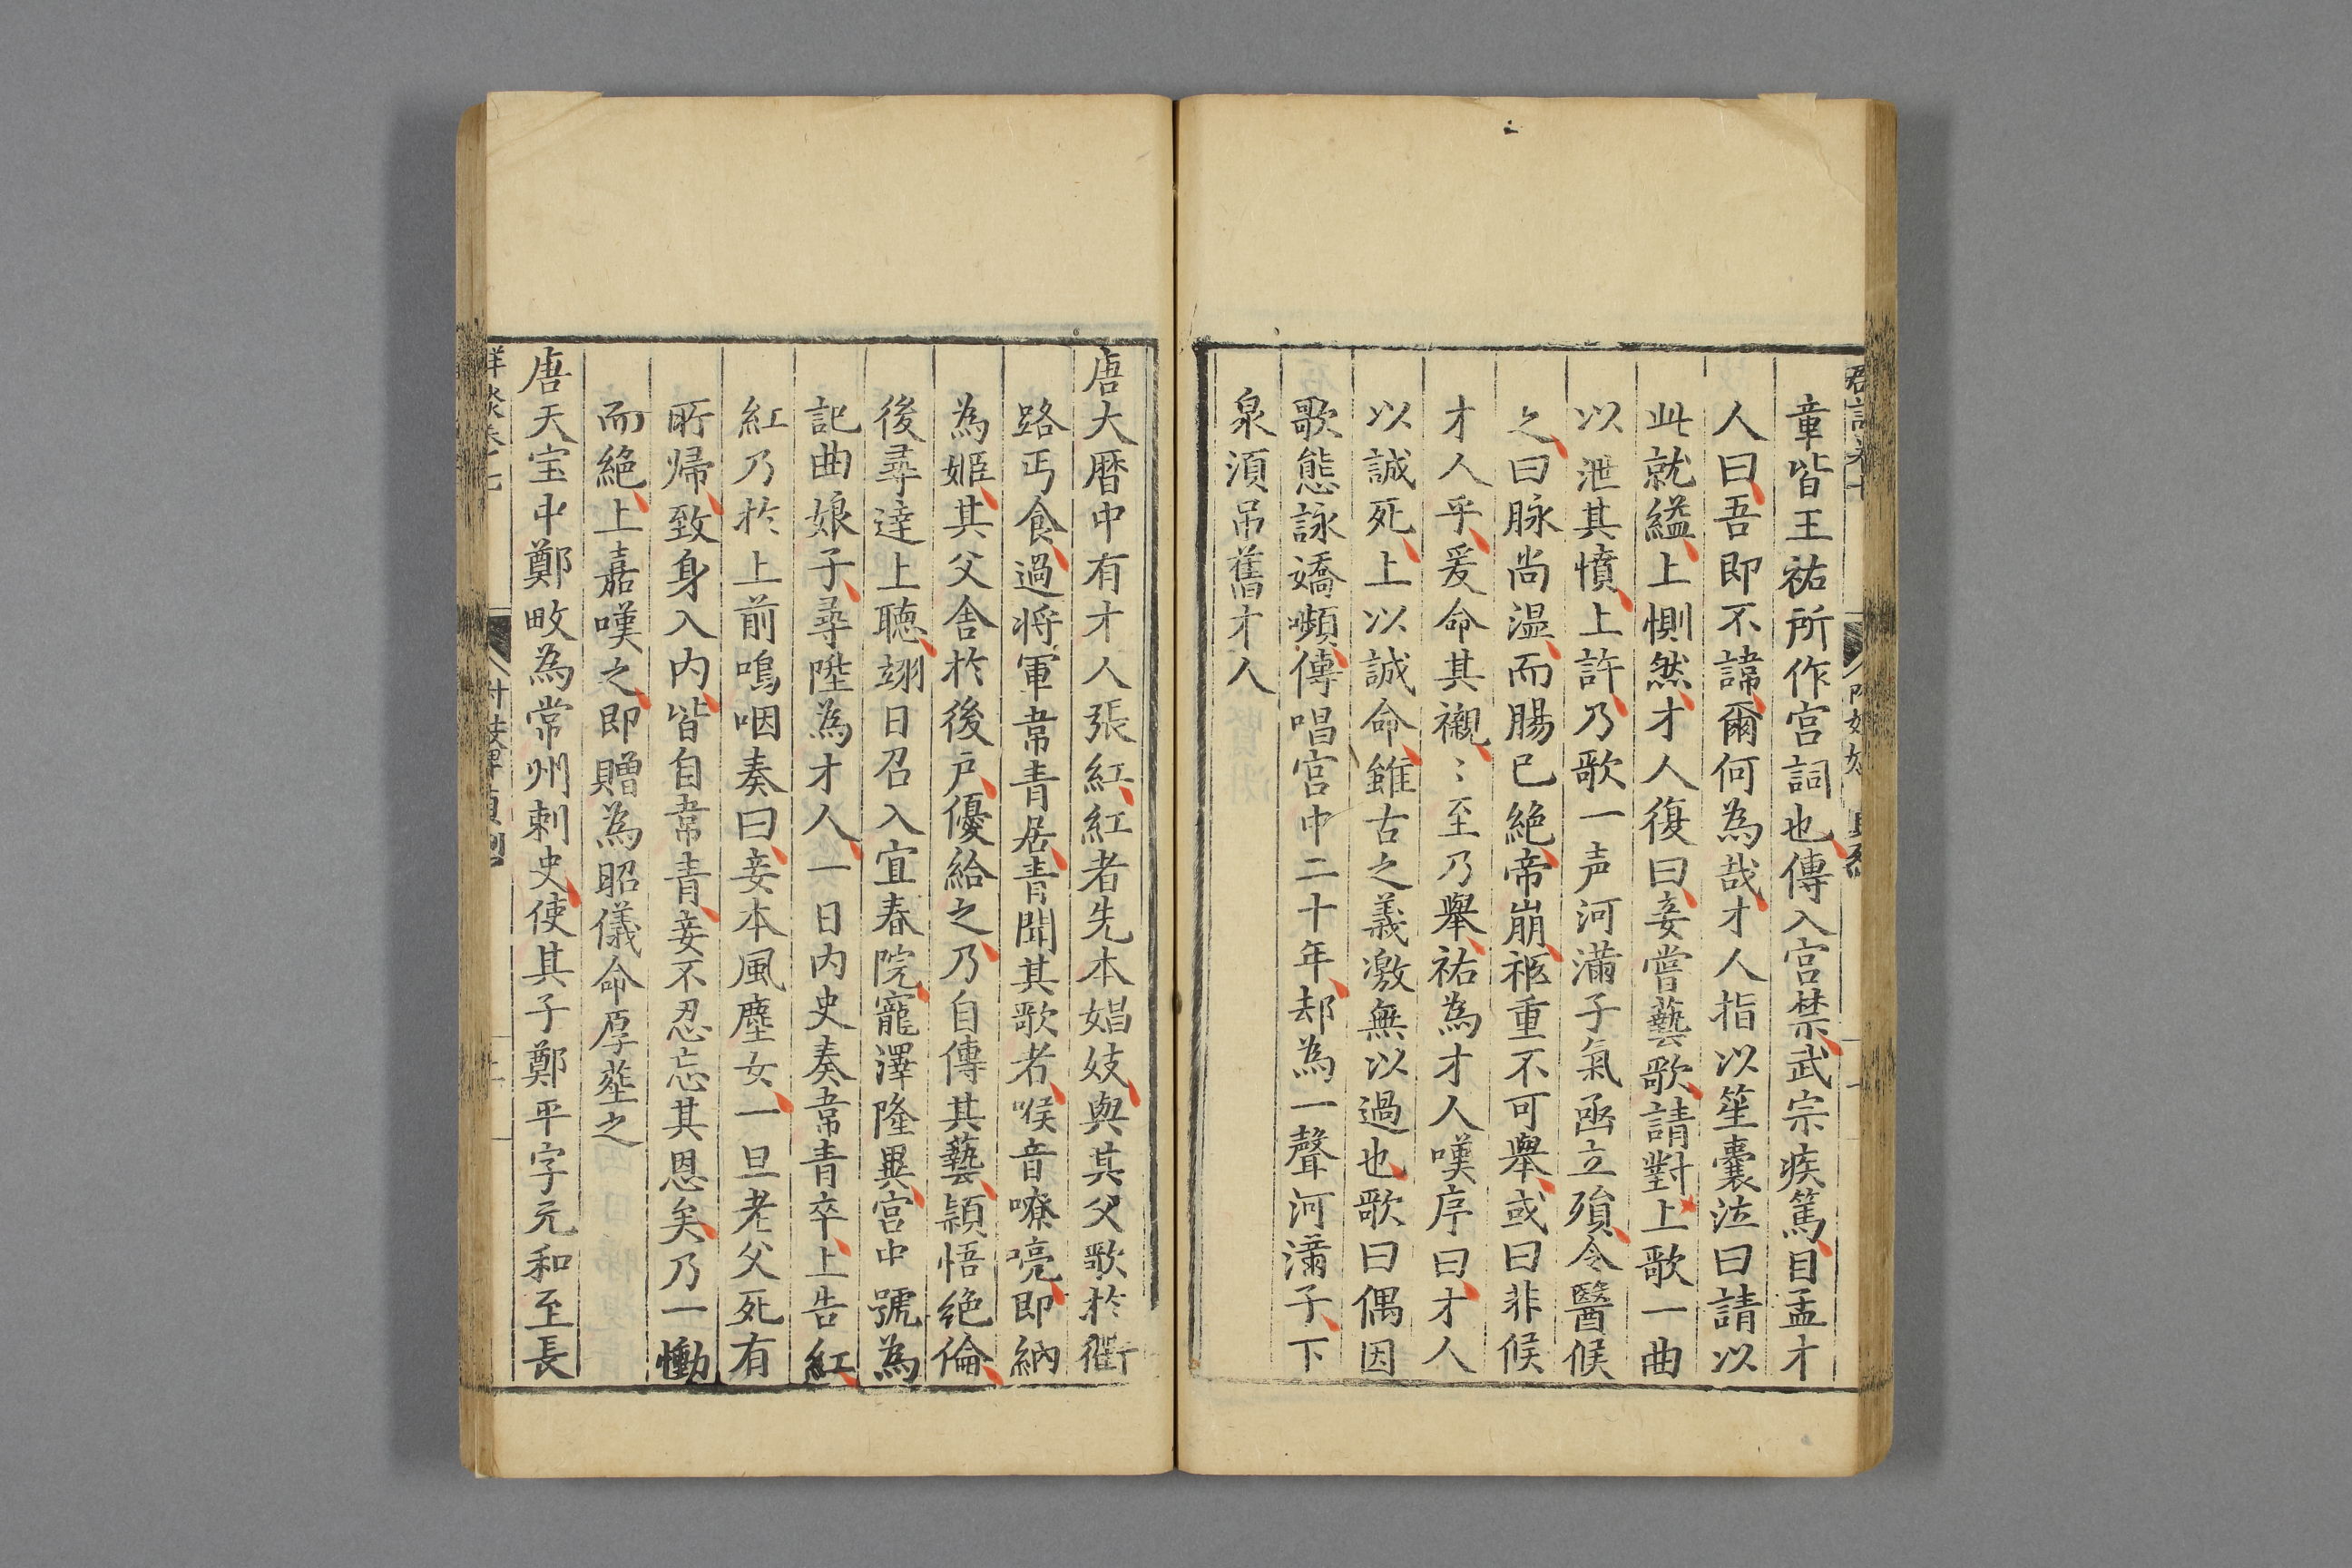 章皆王祐所作宫詞也傳入宫禁武宗疾篤目孟才
人曰吾即不諱爾何為哉才人指以笙囊泣曰請以
此就縊上惻然才人復曰妾嘗藝歌請對上歌一曲
以泄其憤上許乃歌一声河滿子氣亟立殞令醫候
之曰脉尚温而腸已絶帝崩柩重不可舉或曰非候
才人乎爰命其襯〻至乃舉祐為才人嘆序曰才人
以誠死上以誠命雖古之義激無以過也歌曰偶因
歌態詠嬌嚬傳唱宫中二十年却為一聲河滿子下
泉湏吊舊才人
唐大曆中有才人張紅紅者先本娼妓與其父歌於衢
路丐食過将軍韋青居青聞其歌者喉音嘹喨即納
為姬其父舍於後戶優給之乃自傳其藝穎悟絶倫
後尋達上聴翊日召入宜春院寵澤隆異宫中號為
記曲娘子尋陞為才人一日内史奏韋青卒上告紅
紅乃於上前嗚咽奏曰妾本風塵女一旦老父死有
所歸致身入内皆自韋青妾不忍忘其恩矣乃一慟
而絶上嘉嘆之即贈為昭儀命厚塟之
唐天宝中鄭畋為常州刺史使其子鄭平字元和至長